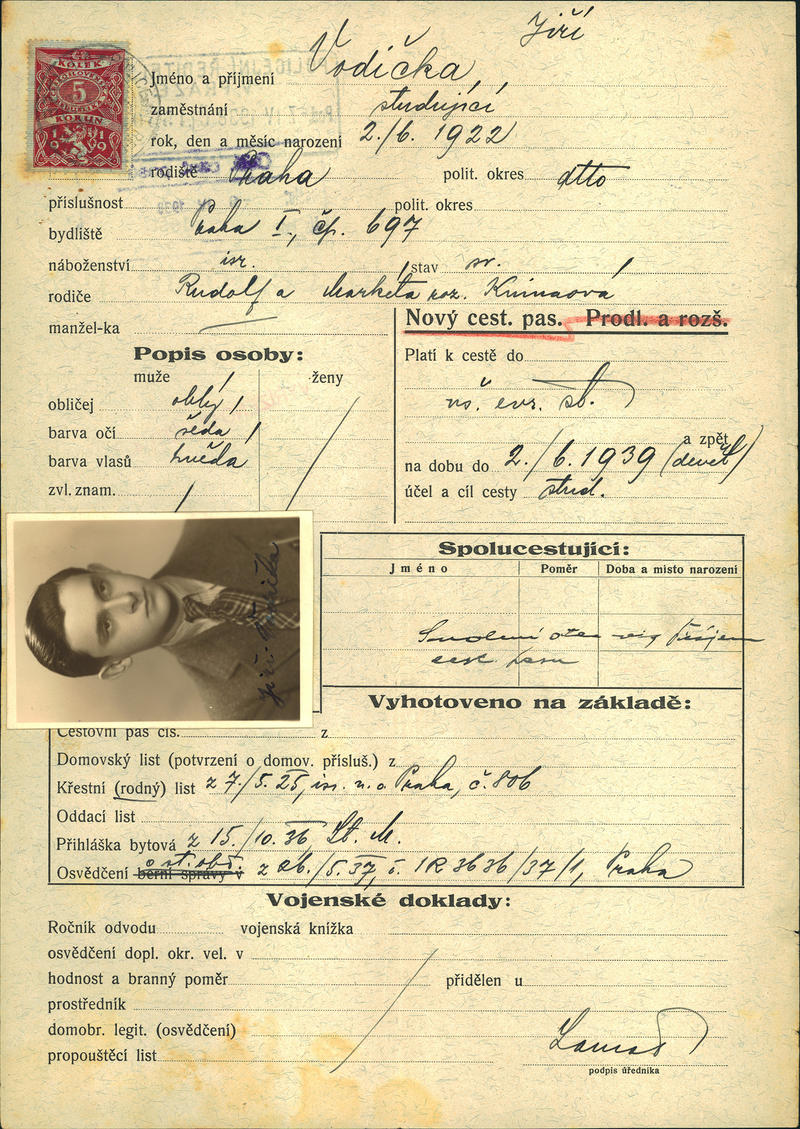 Jiří
Jméno a příjmení Vodička
zaměstnání studující
rok, den a měsíc narození 2./6. 1922
rodiště Praha polit. okres dtto
příslušnost polit. okres
bydliště Praha I., čp. 697
náboženství isr. stav sv.
rodiče Rudolf a Marketa roz.
manžel-ka
Nový cest. pas. Prodl. a rozš.
Popis osoby:
muže ženy
obličej oblý
barva očí šeda
barva vlasů hněda
zvl. znam.
Platí k cestě do
vš. evr. st.
a zpět
na dobu do 2./6. 1939 (devět)
účel a cíl cesty stud.
KOLEK
5
KORUN
1919
Jiří Vodička
Spolucestující:
Jméno Poměr Doba a místo narození
Vyhotoveno na základě:
Cestovní pas čís. z
Domovský list (potvrzení o domov. přísluš.) z
Křestní (rodný) list z 7/5. 25, isr. n. o. Praha, č. 806
Oddací list
Přihláška bytová z 15./10. 36 St. M.
o st. obč.
Osvědčení berní správy v z 26./5. 37, č. 1R 3636/37/1, Praha
Vojenské doklady:
Ročník odvodu vojenská knížka
osvědčení dopl. okr. vel. v
hodnost a branný poměr přidělen u
prostředník
domobr. legit. (osvědčení)
propouštěcí list
podpis úředníka